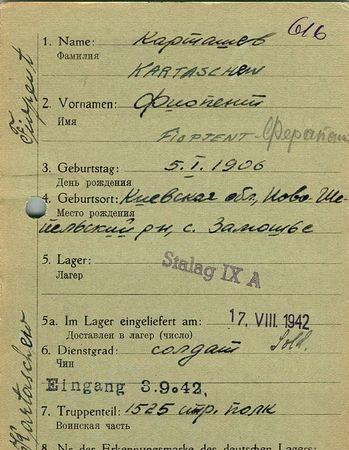 616
1. Name: Карташев
Фамилия
KARTASCHEW
2. Vornamen:
Имя
3. Geburtstag: 5.I.1906
День рождения
4. Geburtsort: Киевская обл, Ново Ше-
Место рождения
пельский рн, с. Замошье
5. Lager: Stalag IX A
Лагерь
5a. Im Lager eingeliefert am: 17. VIII. 1942
Доставлен в лагерь (число)
6. Dienstgrad: солдат Sold.
Чин
Eingang 3.9.42.
7. Truppenteil: 1525 стр. полк
Воинская часть
8. Nr. der Erkennungsmarke des deutschen Lagers:
Kartaschew